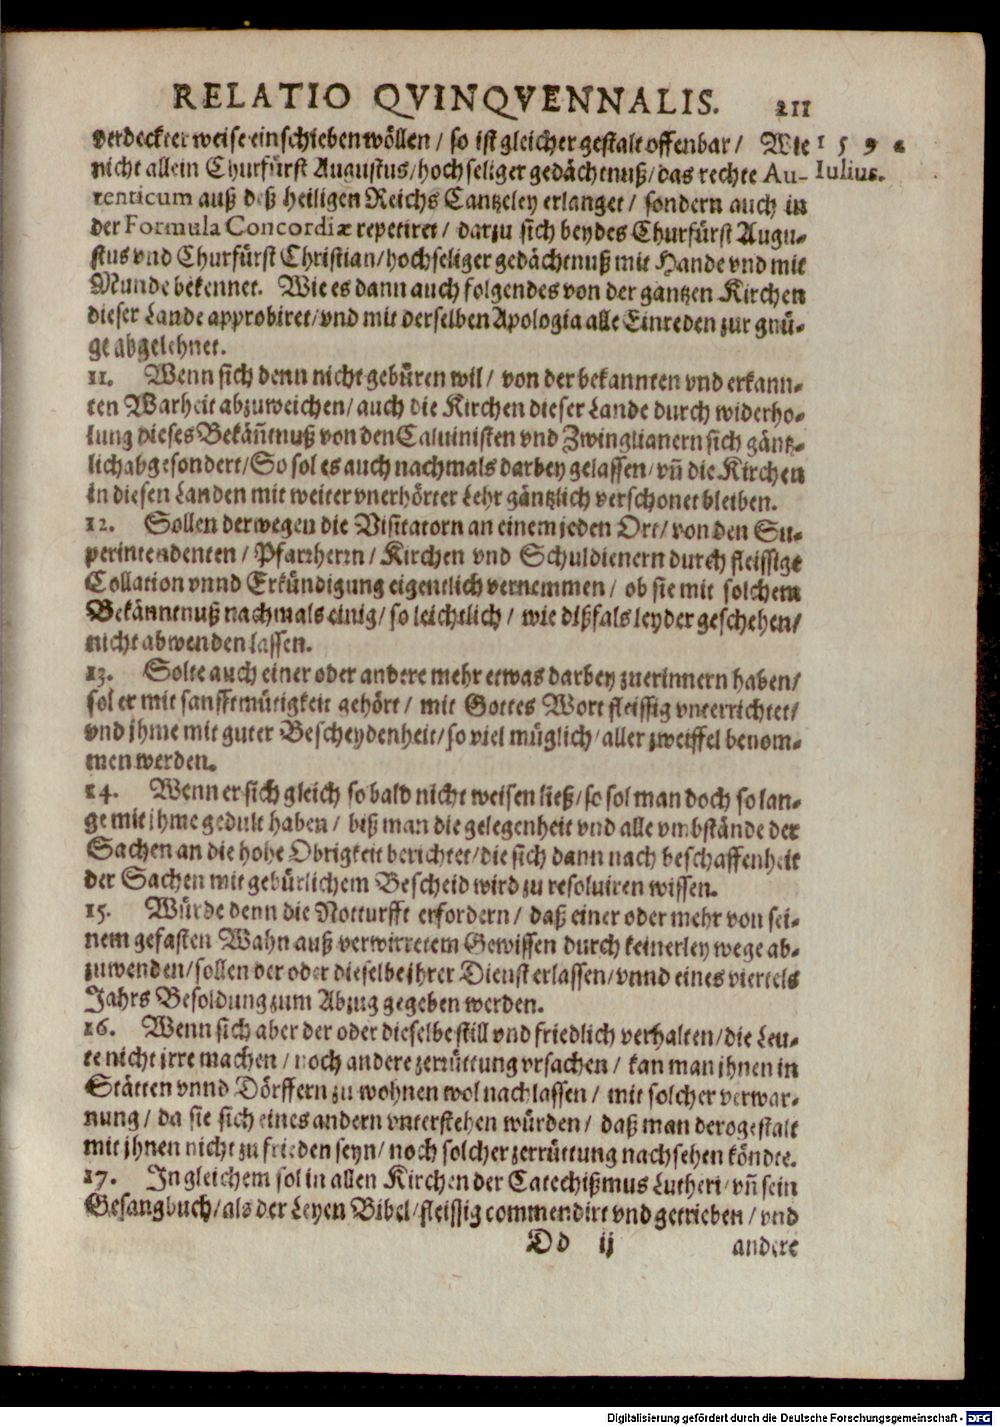 RELATIO QVINQVENNALIS. 211
verdeckter weise einschieben wöllen / so ist gleicher gestalt offenbar / Wie
1 5 9 2
nicht allein Churfürst Augustus / hochseliger gedächtnuß / das rechte Au-
Iulius.
tenticum auß deß heiligen Reichs Cantzeley erlanget / sondern auch in
der Formula Concordiæ repetiret / darzu sich beydes Churfürst Augu-
stus vnd Churfürst Christian / hochseliger gedächtnuß mit Hande vnd mit
Munde bekennet. Wie es dann auch folgendes von der gantzen Kirchen
dieser Lande approbiret / vnd mit derselben Apologia alle Einreden zur gnü-
ge abgelehnet.
11. Wenn sich denn nicht gebüren wil / von der bekannten vnd erkann-
ten Warheit abzuweichen / auch die Kirchen dieser Lande durch widerho-
lung dieses Bekäñtnuß von den Caluinisten vnd Zwinglianern sich gäntz-
lich abgesondert / So sol es auch nachmals darbey gelassen / vñ die Kirchen
in diesen Landen mit weiter vnerhörter Lehr gäntzlich verschonet bleiben.
12. Sollen derwegen die Visitatorn an einem jeden Ort / von den Su-
perintendenten / Pfarrherrn / Kirchen vnd Schuldienern durch fleissige
Collation vnnd Erkündigung eigentlich vernemmen / ob sie mit solchem
Bekänntnuß nachmals einig / so leichtlich / wie dißfals leyder geschehen /
nicht abwenden lassen.
13. Solte auch einer oder andere mehr etwas darbey zuerinnern haben /
sol er mit sanfftmütigkeit gehört / mit Gottes Wort fleissig vnterrichtet /
vnd jhme mit guter Bescheydenheit / so viel müglich / aller zweiffel benom-
men werden.
14. Wenn er sich gleich so bald nicht weisen ließ / so sol man doch so lan-
ge mit jhme gedult haben / biß man die gelegenheit vnd alle vmbstände der
Sachen an die hohe Obrigkeit berichtet / die sich dann nach beschaffenheit
der Sachen mit gebürlichem Bescheid wird zu resoluiren wissen.
15. Würde denn die Notturfft erfordern / daß einer oder mehr von sei-
nem gefasten Wahn auß verwirretem Gewissen durch keinerley wege ab-
zuwenden / sollen der oder dieselbe ihrer Dienst erlassen / vnnd eines viertels
Jahrs Besoldung zum Abzug gegeben werden.
16. Wenn sich aber der oder dieselbe still vnd friedlich verhalten / die Leu-
te nicht jrre machen / noch andere zerrüttung vrsachen / kan man jhnen in
Stätten vnnd Dörffern zu wohnen wol nachlassen / mit solcher verwar-
nung / da sie sich eines andern vnterstehen würden / daß man derogestalt
mit jhnen nicht zu frieden seyn / noch solcher zerrüttung nachsehen köndte.
17. In gleichem sol in allen Kirchen der Catechißmus Lutheri / vñ sein
Gesangbuch / als der Leyen Bibel / fleissig commendirt vnd getrieben / vnd
Dd ij andere
Digitalisierung gefördert durch die Deutsche Forschungsgemeinschaft - DFG